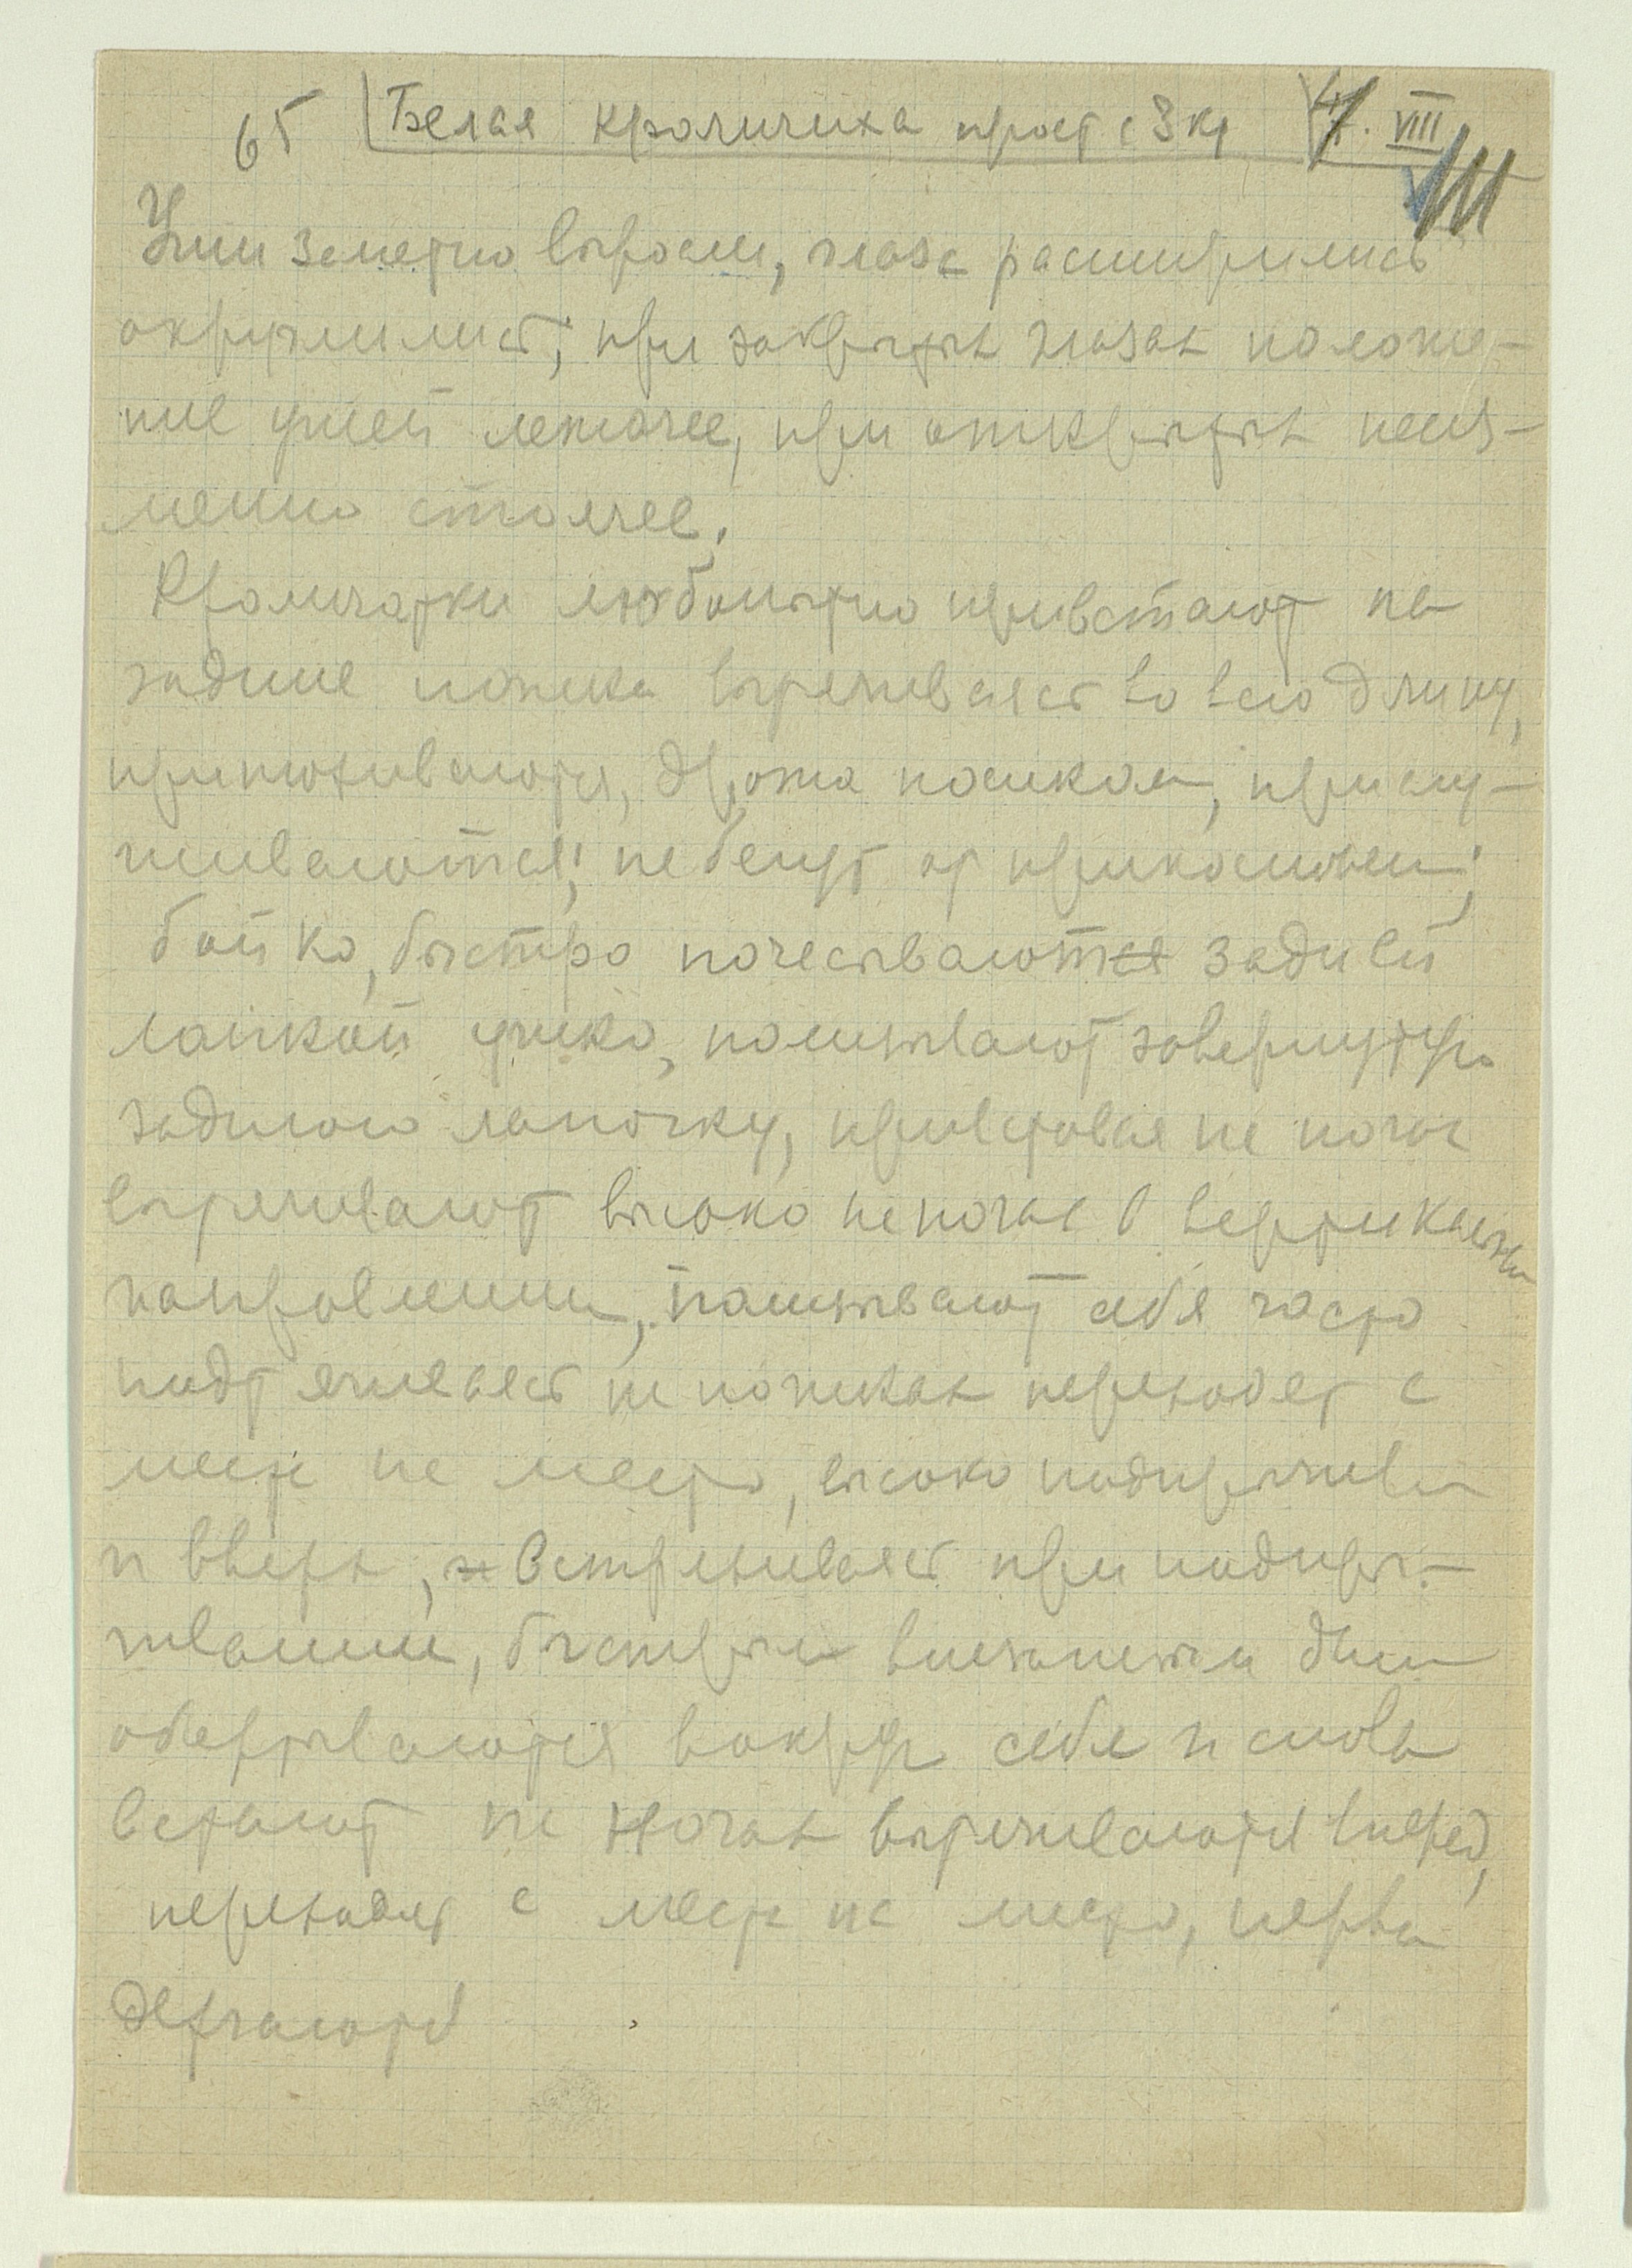 65 Белая крольчиха прост с 3 кр 7. VIII
Уши заметно выросли, глаза расширились
округлились; при закрытых глазах положе-
ние ушей лежачее, при открытых неиз-
менно стоячее.
Крольчатки любопытно привстают на
задние ножки вытягиваясь во всю длину,
принюхиваются, дрожа носиком, прислу-
шиваются; не бегут от прикосновен;
бойко, быстро почесывают задней
лапкой ушко, полизывают завернутую
заднюю лапочку, привставая на ногах
вытягивают высоко на ногах в вертикальн
направлении, полизывают себя часто
подтягиваясь на ножках переходят с
места на место, высоко подпрыгивая
и вверх, встряхиваясь при подпры-
гивании, быстрыми внезапными дви
обертываются вокруг себя и снова
встают на ногах вытягиваются вперед,
переходят с места на место, нервн
дергаются